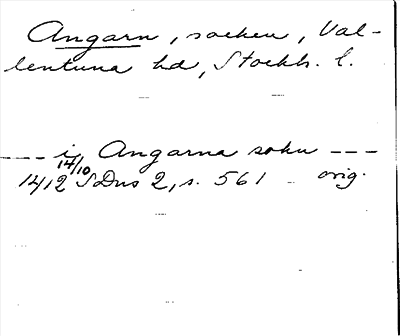 Angarn, socken, Val-
lentuna hd, Stockh. l.
--- i Angarna sokn ---
14/10
1412 SDns 2, s. 561 - orig.